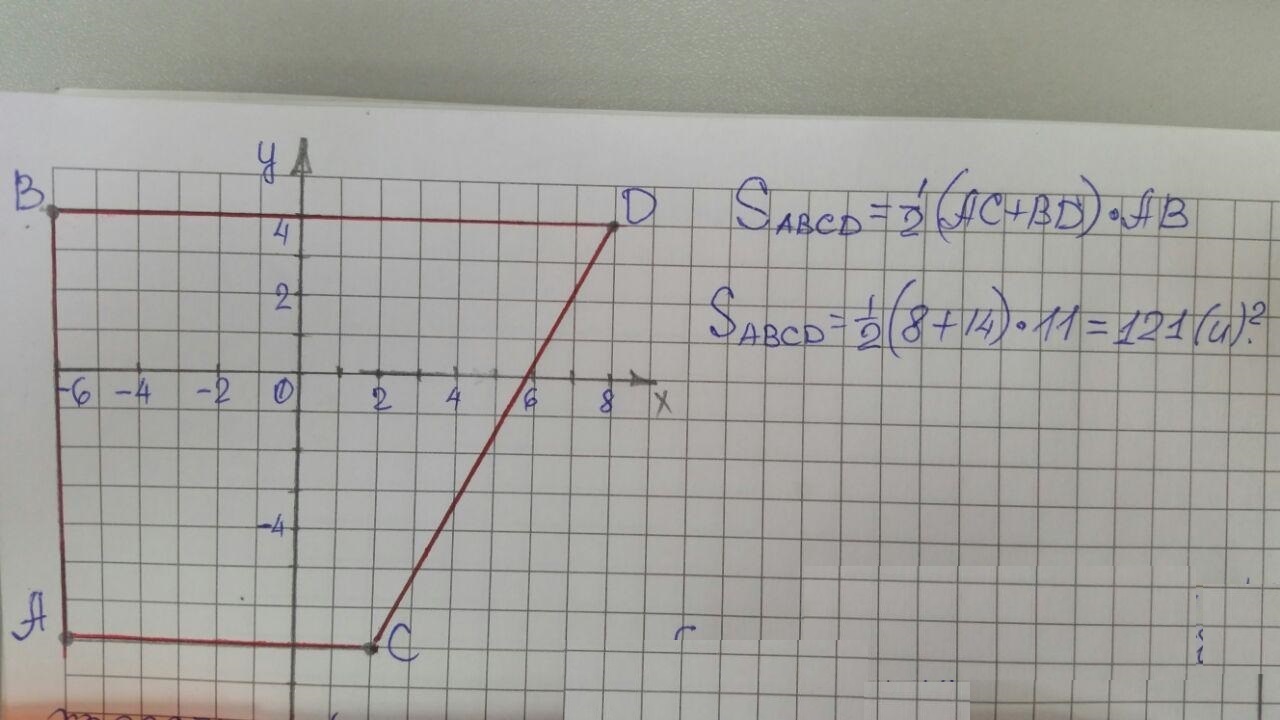 y
B
D
S ABCD = 1/2 (AC+BD)•AB
4
2
S ABCD = 1/2 (8+14)•11 = 121 (u)².
-6 -4 -2 0 2 4 6 8 x
-4
A
C